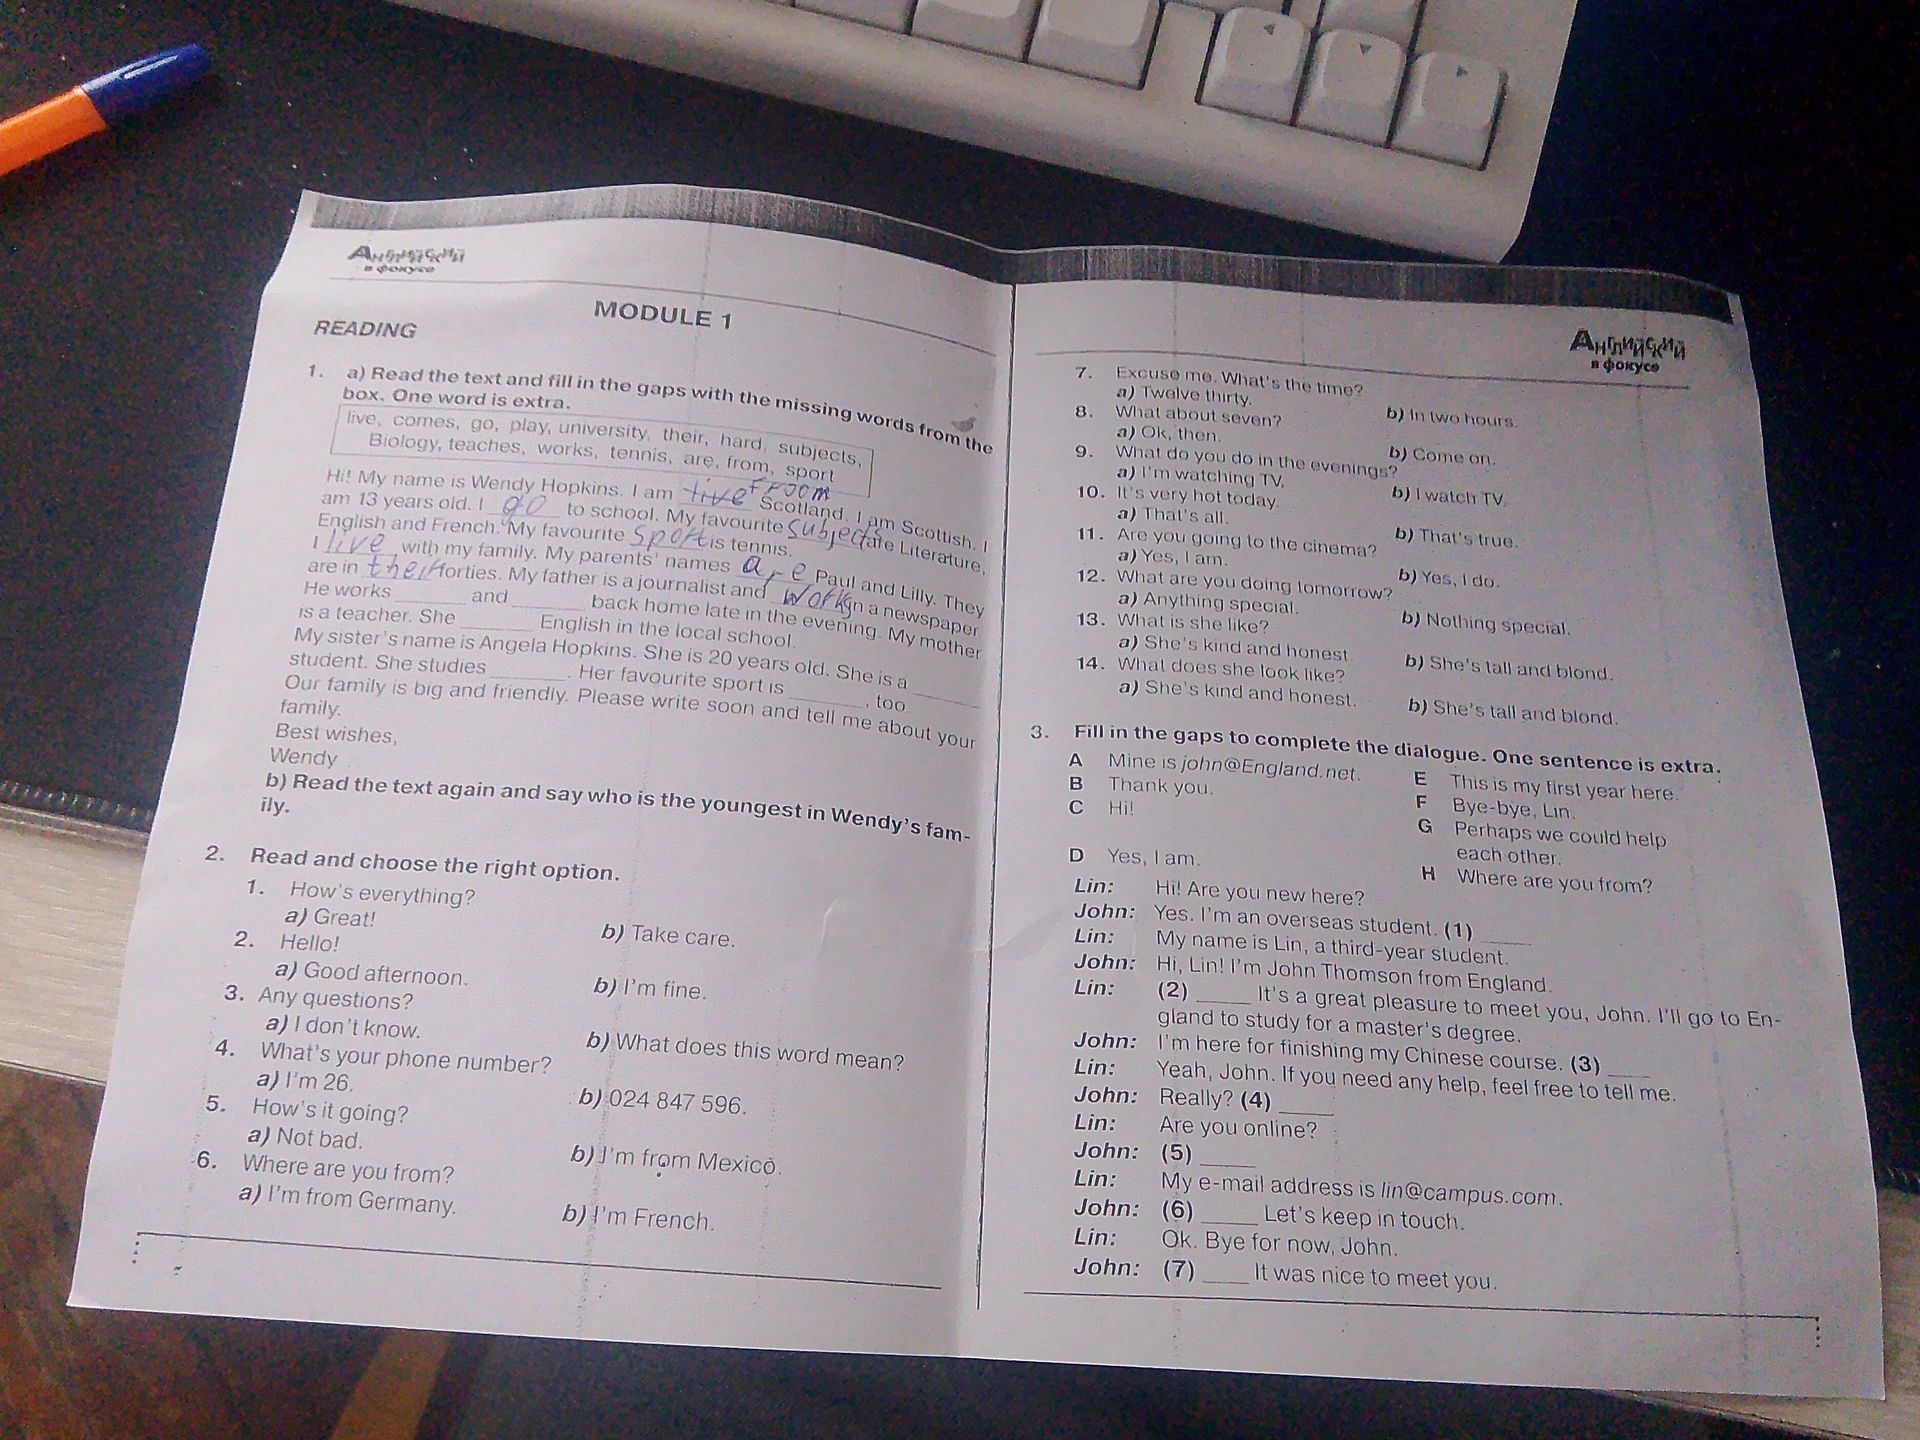 Английский
в фокусе
MODULE 1
READING
1. a) Read the text and fill in the gaps with the missing words from the
box. One word is extra.
live, comes, go, play, university, their, hard, subjects,
Biology, teaches, works, tennis, are, from, sport
Hi! My name is Wendy Hopkins. I am live from Scotland. I am Scottish. I
am 13 years old. I go to school. My favourite subjects are Literature,
English and French. My favourite sport is tennis.
I live with my family. My parents' names are Paul and Lilly. They
are in their forties. My father is a journalist and works in a newspaper.
He works ______ and ______ back home late in the evening. My mother
is a teacher. She ______ English in the local school.
My sister's name is Angela Hopkins. She is 20 years old. She is a ______
student. She studies ______. Her favourite sport is ______, too.
Our family is big and friendly. Please write soon and tell me about your
family.
Best wishes,
Wendy
b) Read the text again and say who is the youngest in Wendy's fam-
ily.
2. Read and choose the right option.
1. How's everything?
a) Great! b) Take care.
2. Hello!
a) Good afternoon. b) I'm fine.
3. Any questions?
a) I don't know. b) What does this word mean?
4. What's your phone number?
a) I'm 26. b) 024 847 596.
5. How's it going?
a) Not bad. b) I'm from Mexico.
6. Where are you from?
a) I'm from Germany. b) I'm French.
Английский
в фокусе
7. Excuse me. What's the time?
a) Twelve thirty. b) In two hours.
8. What about seven?
a) Ok, then. b) Come on.
9. What do you do in the evenings?
a) I'm watching TV. b) I watch TV.
10. It's very hot today.
a) That's all. b) That's true.
11. Are you going to the cinema?
a) Yes, I am. b) Yes, I do.
12. What are you doing tomorrow?
a) Anything special. b) Nothing special.
13. What is she like?
a) She's kind and honest. b) She's tall and blond.
14. What does she look like?
a) She's kind and honest. b) She's tall and blond.
3. Fill in the gaps to complete the dialogue. One sentence is extra.
A Mine is john@England.net.
B Thank you.
C Hi!
D Yes, I am.
E This is my first year here.
F Bye-bye, Lin.
G Perhaps we could help
each other.
H Where are you from?
Lin: Hi! Are you new here?
John: Yes. I'm an overseas student. (1) ____
Lin: My name is Lin, a third-year student.
John: Hi, Lin! I'm John Thomson from England.
Lin: (2) ____ It's a great pleasure to meet you, John. I'll go to En-
gland to study for a master's degree.
John: I'm here for finishing my Chinese course. (3) ____
Lin: Yeah, John. If you need any help, feel free to tell me.
John: Really? (4) ____
Lin: Are you online?
John: (5) ____
Lin: My e-mail address is lin@campus.com.
John: (6) ____ Let's keep in touch.
Lin: Ok. Bye for now, John.
John: (7) ____ It was nice to meet you.